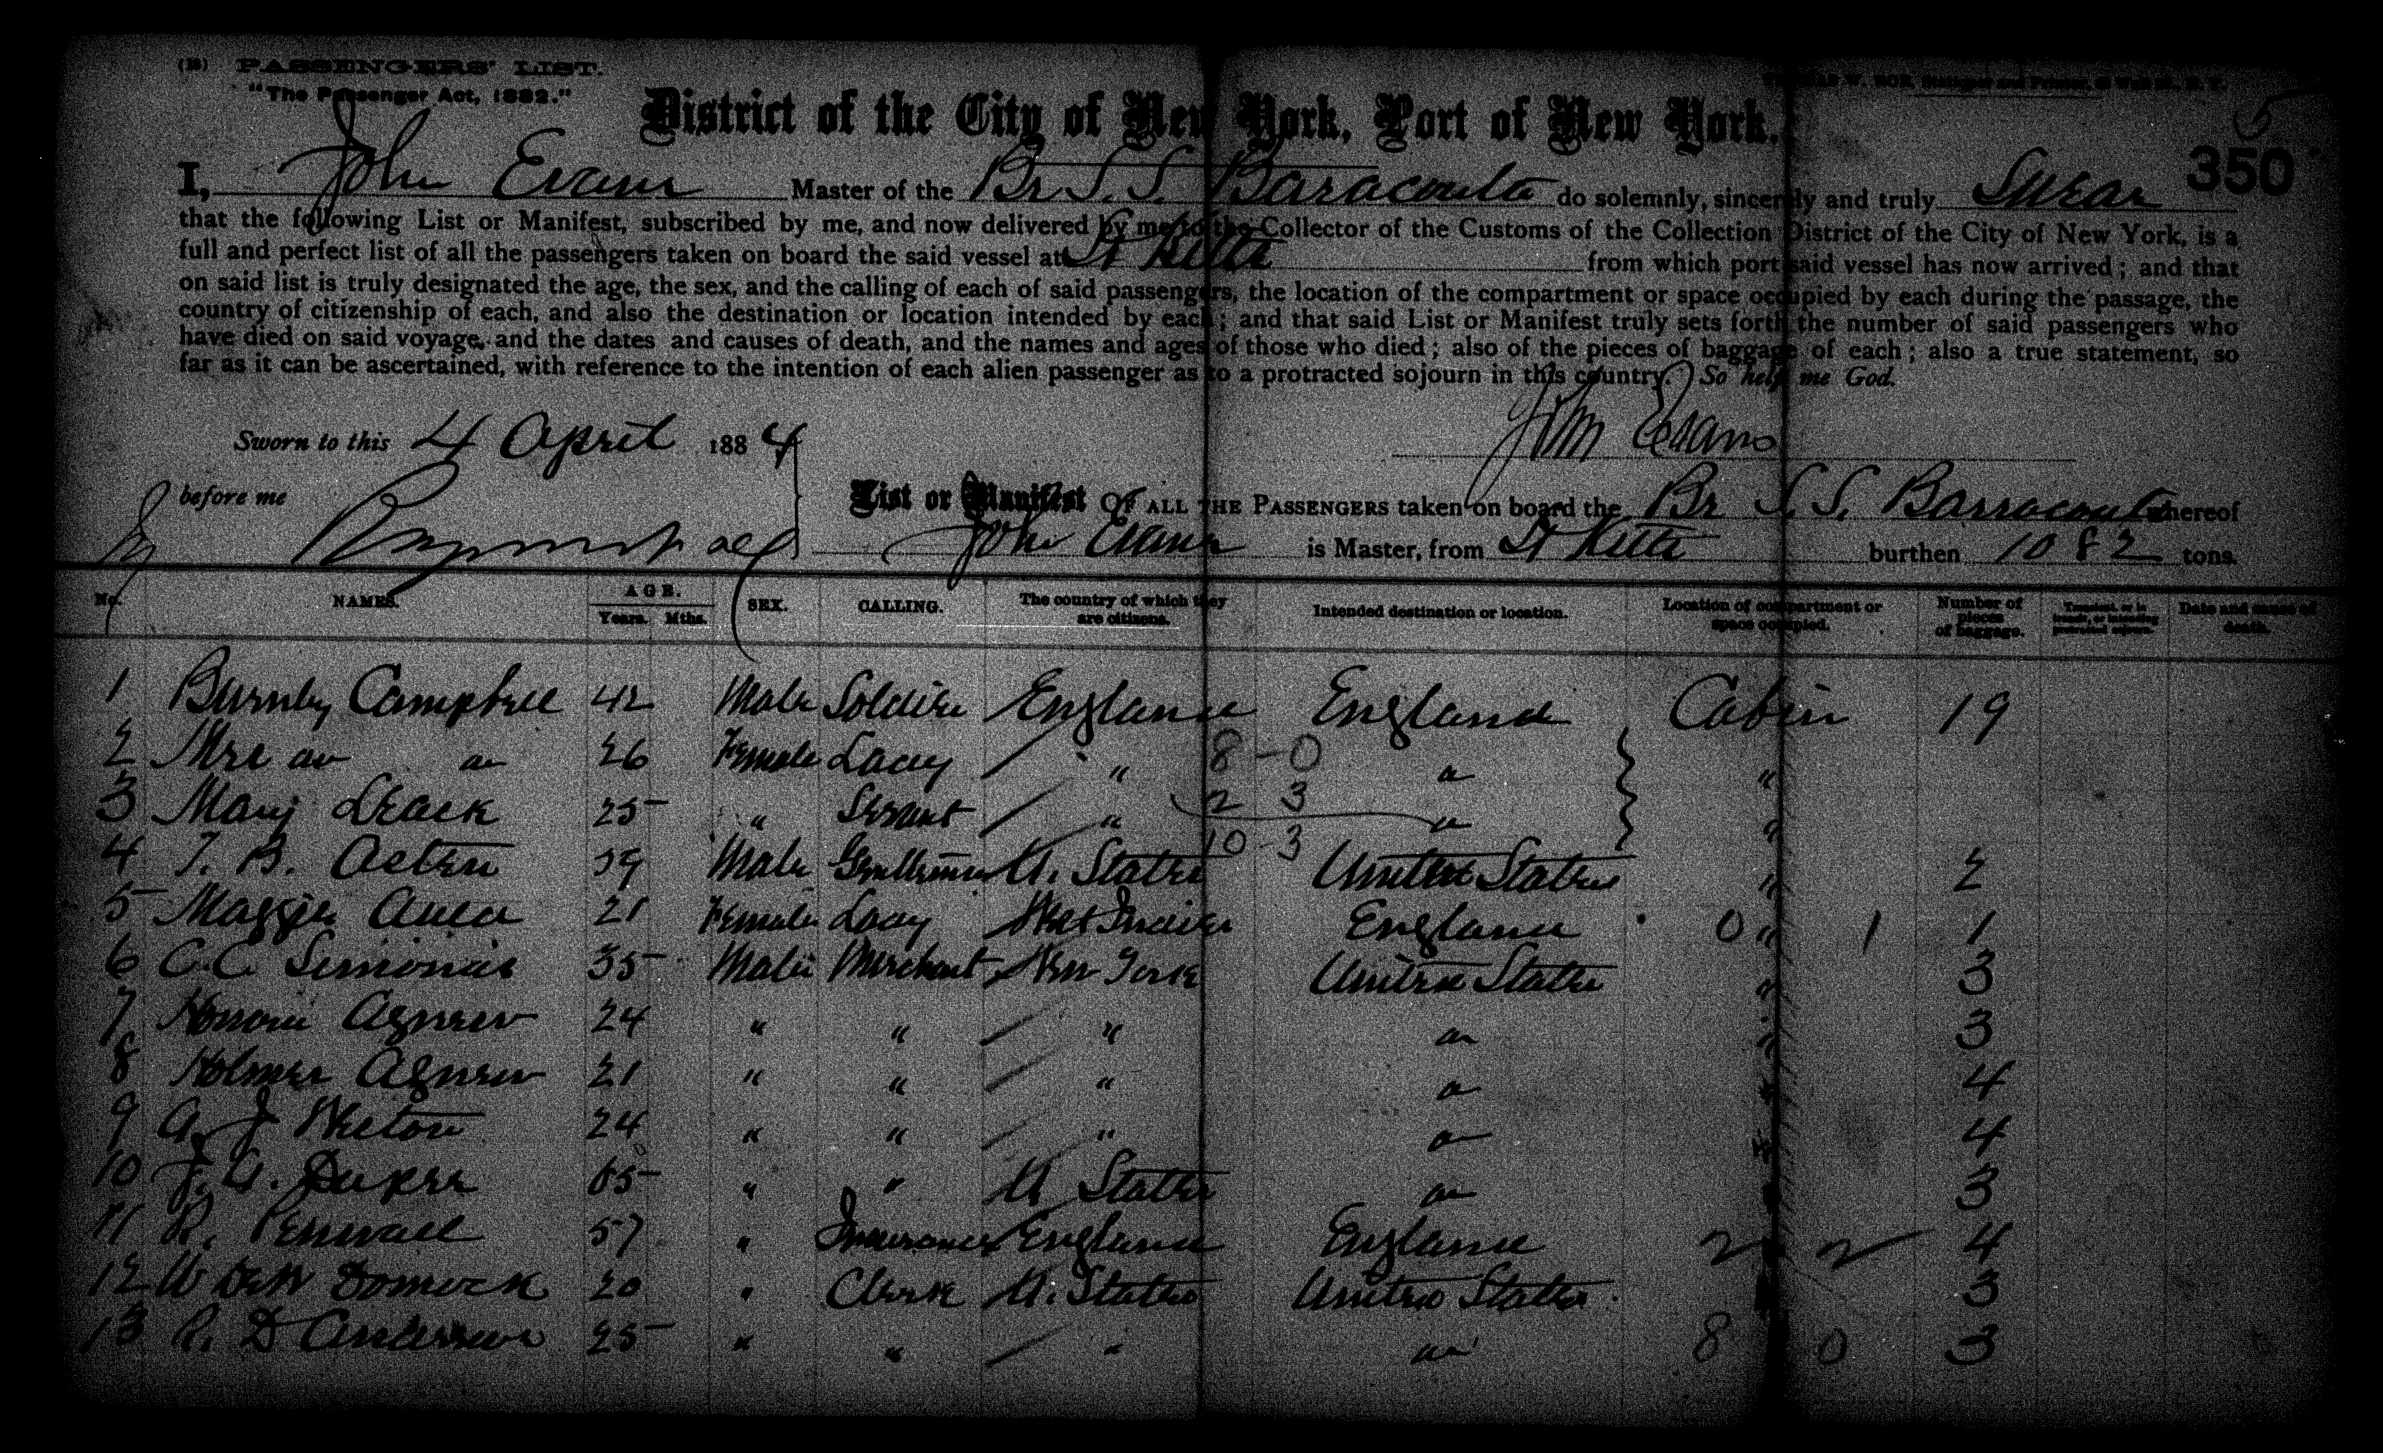 (B) PASSENGERS' LIST.
"The Passenger Act, 1882."
District of the City of New York, Port of New York.
5
350
I, John Evans Master of the Br S. S. Baracouta do solemnly, sincerely and truly Swear
that the following List or Manifest, subscribed by me, and now delivered by me to the Collector of the Customs of the Collection District of the City of New York, is a
full and perfect list of all the passengers taken on board the said vessel at St Kitts from which port said vessel has now arrived; and that
on said list is truly designated the age, the sex, and the calling of each of said passengers, the location of the compartment or space occupied by each during the passage, the
country of citizenship of each, and also the destination or location intended by each; and that said List or Manifest truly sets forth the number of said passengers who
have died on said voyage, and the dates and causes of death, and the names and ages of those who died; also of the pieces of baggage of each; also a true statement, so
far as it can be ascertained, with reference to the intention of each alien passenger as to a protracted sojourn in this country. So help me God.
Sworn to this 4 April 1884 John Evans
before me
List or Manifest OF ALL THE PASSENGERS taken on board the Br S. S. Barracouta whereof
John Evans is Master, from St Kitts burthen 1082 tons.
No. NAMES. AGE. Years. Mths. SEX. CALLING. The country of which they are citizens. Intended destination or location. Location of compartment or space occupied. Number of pieces of baggage. Transient, or in transit, or intending protracted sojourn. Date and cause of death.
1 Burnby Campbell 42 Male Soldier England England Cabin 19
2 Mrs do do 26 Female Lady " 8-0 do "
3 Mary Leack 25 " Servant " 2 3 do "
10-3
4 T. B. Asten 59 Male Gentleman U. States United States " 2
5 Maggie 21 Female Lady West Indies England 0 " 1 1
6 C. C. Simonds 35 Male Merchant New York United States " 3
7 Agnew 24 " " " do " 3
8 Holmes Agnew 21 " " " do " 4
9 A J Weton 24 " " " do " 4
10 J. A. 65 " " U States do " 3
11 R. Penwall 57 " Insurance England England 2 " 2 4
12 W DeW 20 " Clerk U. States United States " 3
13 R. D Anderson 25 " " " do 8 0 3